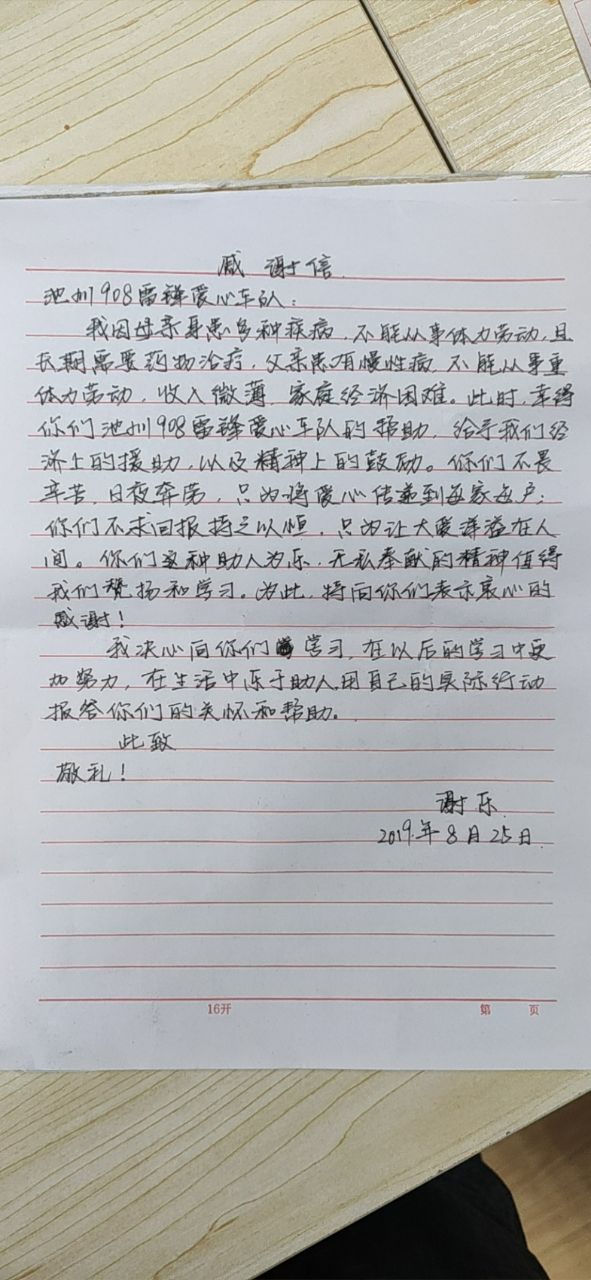 感谢信
池州908雷锋爱心车队：
我因母亲身患多种疾病，不能从事体力劳动，且
长期需要药物治疗，父亲患有慢性病，不能从事重
体力劳动，收入微薄，家庭经济困难。此时，幸得
你们池州908雷锋爱心车队的帮助，给予我们经
济上的援助，以及精神上的鼓励。你们不畏
辛苦，日夜奔劳，只为将爱心传递到每家每户；
你们不求回报持之以恒，只为让大爱洋溢在人
间。你们这种助人为乐，无私奉献的精神值得
我们赞扬和学习。为此，特向你们表示衷心的
感谢！
我决心向你们学习，在以后的学习中更
加努力，在生活中乐于助人，用自己的实际行动
报答你们的关怀和帮助。
此致
敬礼！
谢乐
2019年8月25日
16开
第 页